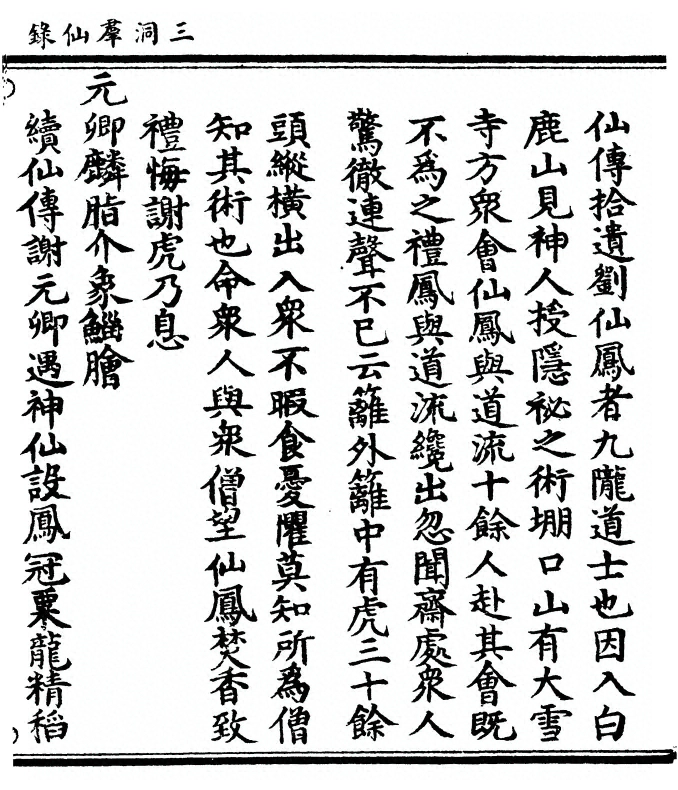 三洞羣仙錄
仙傳拾遺劉仙鳳者九隴道士也因入白
鹿山見神人授隱祕之術堋口山有大雪
寺方衆會仙鳳與道流十餘人赴其會既
不爲之禮鳳與道流纔出忽聞齋處衆人
驚徹連聲不已云籬外籬中有虎三十餘
頭縱橫出入衆不暇食憂懼莫知所爲僧
知其術也命衆人與衆僧望仙鳳焚香致
禮悔謝虎乃息
元卿麟脂介象鯔膾
續仙傳謝元卿遇神仙設鳳冠粟龍精稻